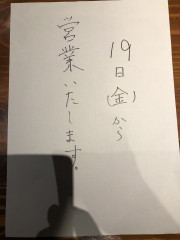 19日(金)から
営業いたします。